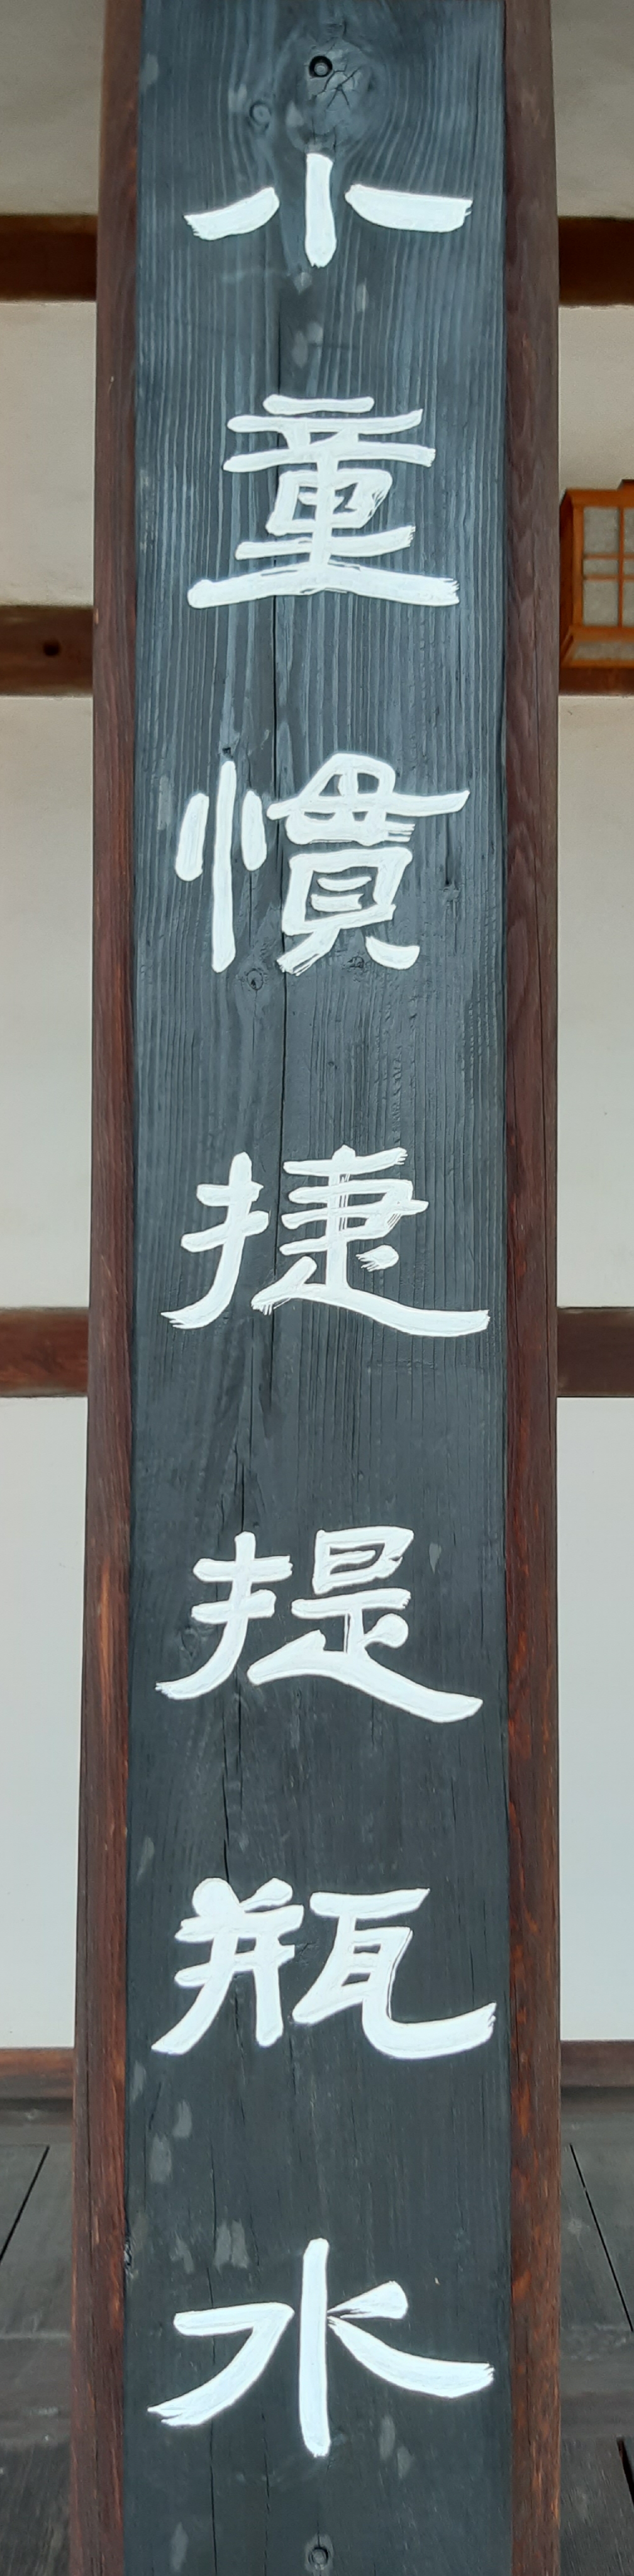 小童慣捷提瓶水